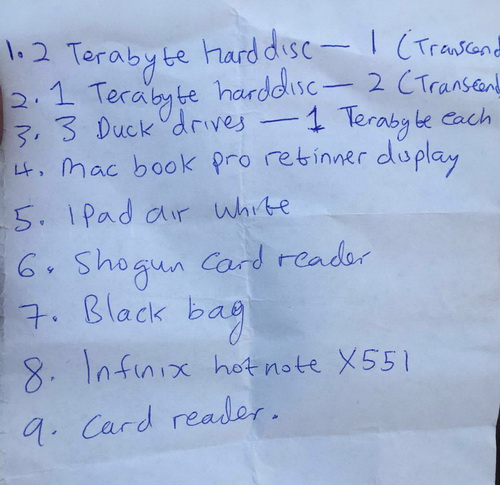 1. 2 Terabyte harddisc — 1 (Transcend
2. 1 Terabyte harddisc — 2 (Transcend
3. 3 Duck drives — 1 Terabyte each
4. Mac book pro retinner display
5. iPad air white
6. Shogun card reader
7. Black bag
8. Infinix hotnote X551
9. Card reader.